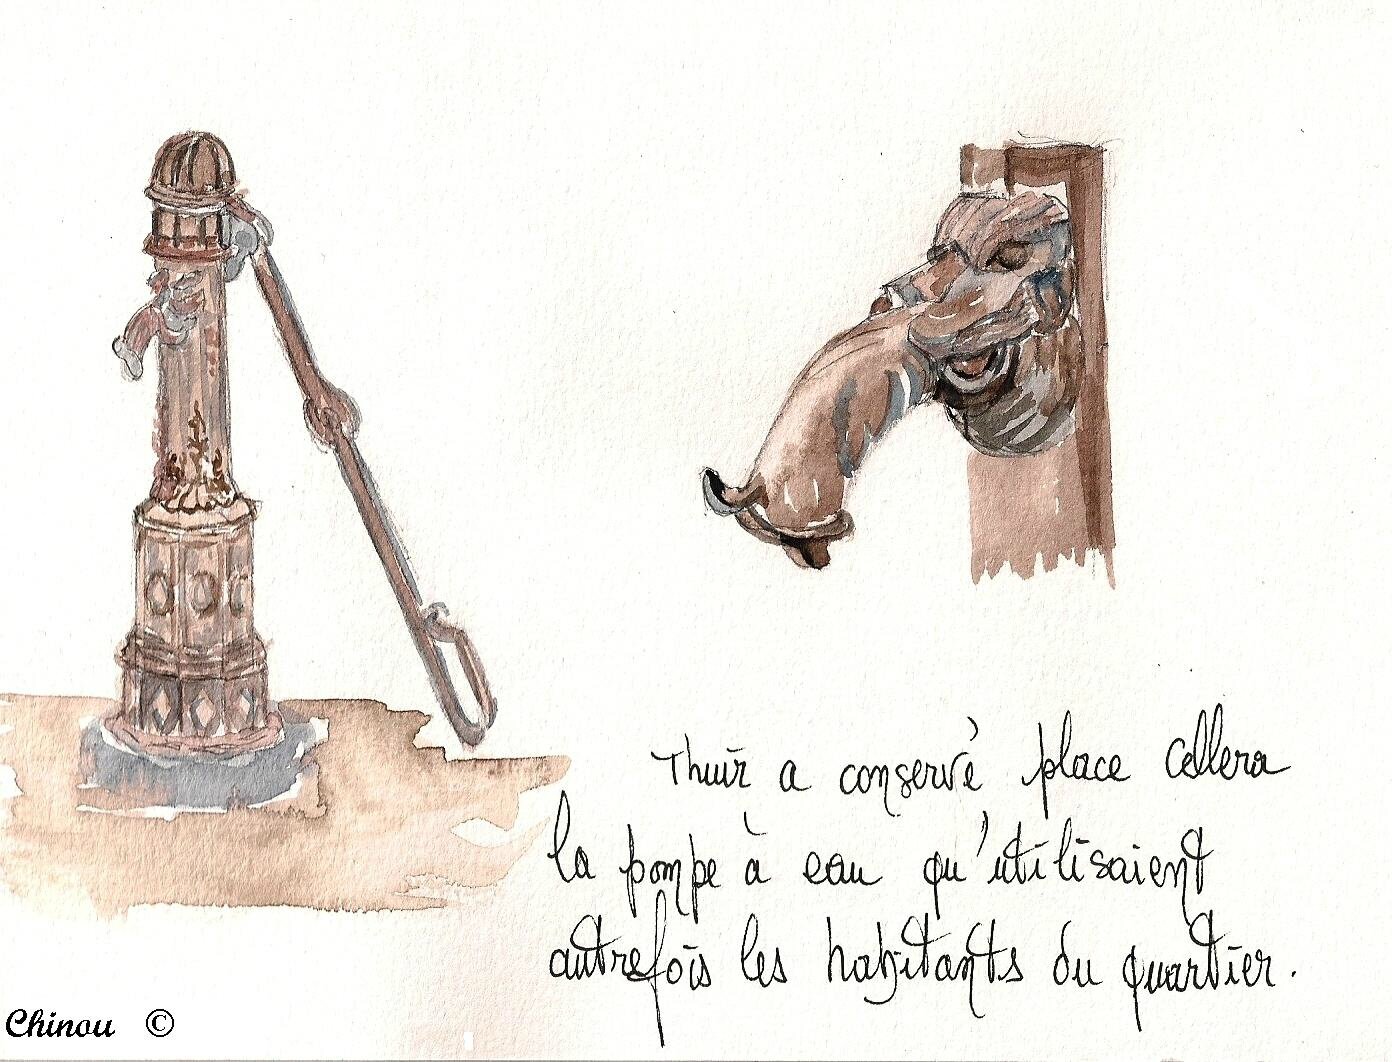 Thuir a conservé place Cellera
la pompe à eau qu'utilisaient
autrefois les habitants du quartier.
Chinou ©